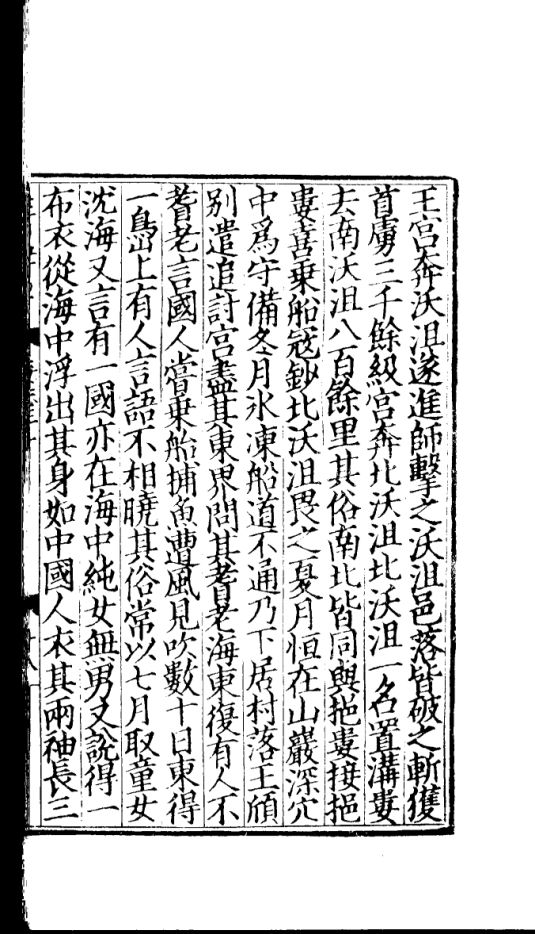 王宮奔沃沮遂進師擊之沃沮邑落皆破之斬獲
首虜三千餘級宮奔北沃沮北沃沮一名置溝婁
去南沃沮八百餘里其俗南北皆同與挹婁接挹
婁喜乗船冦鈔北沃沮畏之夏月恒在山巖深穴
中爲守備冬月氷凍船道不通乃下居村落王頎
别遣追討宮盡其東界問其耆老海東復有人不
耆老言國人甞乗船捕魚遭風見吹數十日東得
一㠀上有人言語不相曉其俗常以七月取童女
沈海又言有一國亦在海中純女無男又說得一
布衣從海中浮出其身如中國人衣其兩袖長三